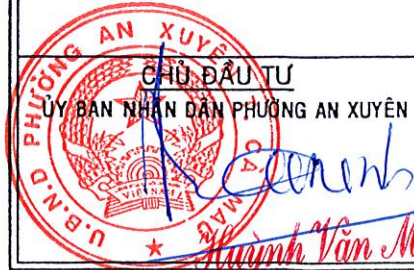 CHỦ ĐẦU TƯ
ỦY BAN NHÂN DÂN PHƯỜNG AN XUYÊN
U.B.N.D PHƯỜNG AN XUYÊN
CÀ MAU
VIỆT NAM
Huỳnh Văn